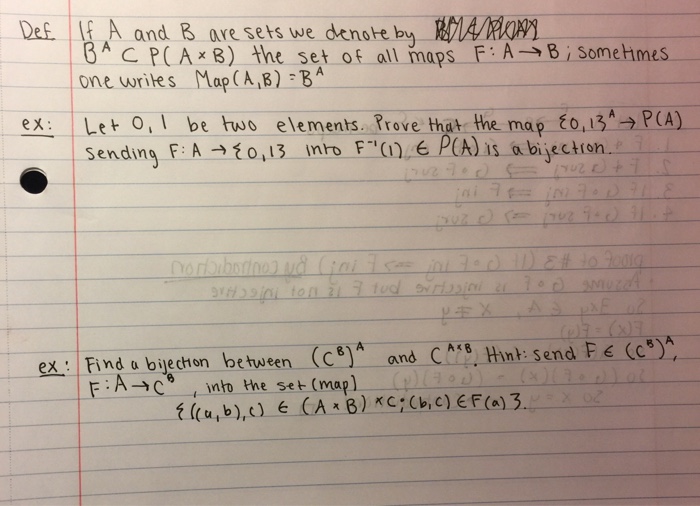 Def If A and B are sets we denote by
B^A ⊂ P(A × B) the set of all maps F: A → B; sometimes
one writes Map(A,B) = B^A
ex: Let 0, 1 be two elements. Prove that the map {0,1}^A → P(A)
sending F: A → {0,1} into F^-1(1) ∈ P(A) is a bijection.
ex: Find a bijection between (C^B)^A and C^A×B. Hint: send F ∈ (C^B)^A,
F: A → C^B, into the set (map)
{((a,b),c) ∈ (A × B) × C; (b,c) ∈ F(a)}.